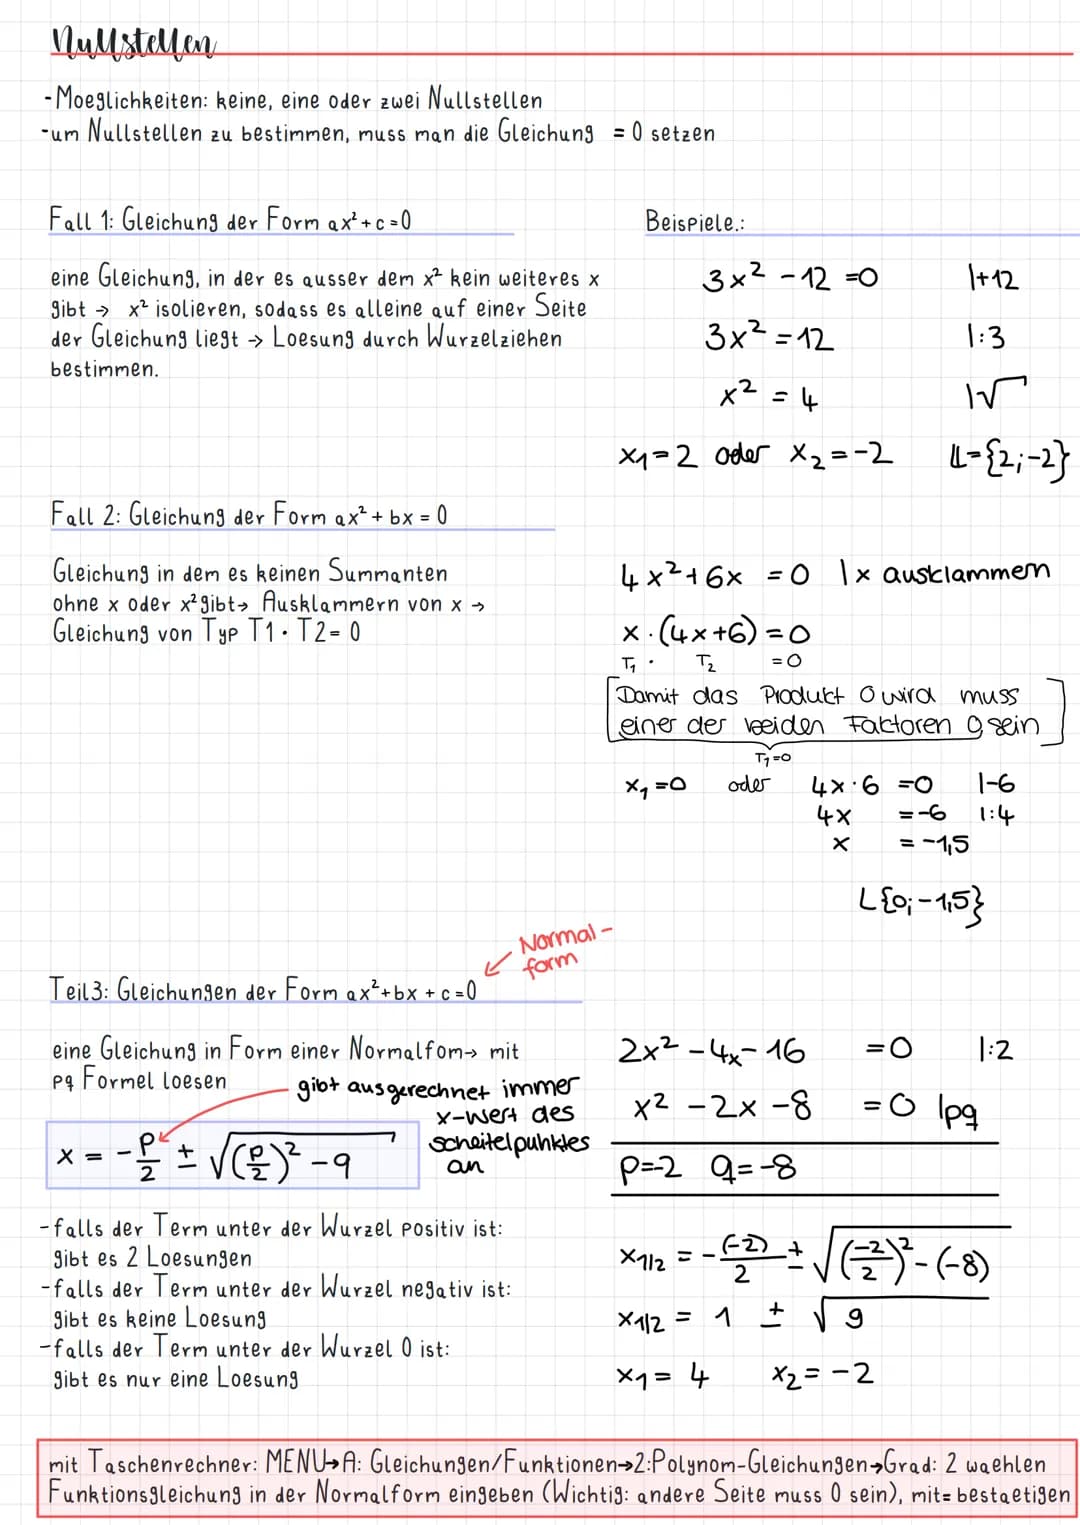 Nullstellen
-Moeglichkeiten: keine, eine oder zwei Nullstellen
-um Nullstellen zu bestimmen, muss man die Gleichung = 0 setzen
Fall 1: Gleichung der Form ax²+c=0
Beispiele.:
eine Gleichung, in der es ausser dem x² kein weiteres x
gibt → x² isolieren, sodass es alleine auf einer Seite
der Gleichung liegt → Loesung durch Wurzelziehen
bestimmen.
3x² -12 =0 |+12
3x² =12 |:3
x² = 4 |√
x₁=2 oder x₂=-2 𝕃={2;-2}
Fall 2: Gleichung der Form ax² + bx = 0
Gleichung in dem es keinen Summanten
ohne x oder x² gibt→ Ausklammern von x →
Gleichung von Typ T1 · T2= 0
4x²+6x =0 |x ausklammern
x·(4x+6)=0
T₁ · T₂ =0
[Damit das Produkt 0 wird muss
einer der beiden Faktoren 0 sein]
T₁=0
x₁=0 oder 4x·6 =0 |-6
4x =-6 |:4
x =-1,5
L{0;-1,5}
Normal-
form
Teil3: Gleichungen der Form ax²+bx + c=0
eine Gleichung in Form einer Normalfom→ mit
pq Formel loesen
gibt ausgerechnet immer
x-Wert des
scheitelpunktes
an
x = -p/2 ± √(p/2)² -q
-falls der Term unter der Wurzel positiv ist:
gibt es 2 Loesungen
-falls der Term unter der Wurzel negativ ist:
gibt es keine Loesung
-falls der Term unter der Wurzel 0 ist:
gibt es nur eine Loesung
2x² -4x-16 =0 |:2
x² -2x -8 =0 |pq
p=-2 q=-8
x1/2 = -(-2)/2 ± √(-2/2)²-(-8)
x1/2 = 1 ± √9
x₁= 4 x₂= -2
mit Taschenrechner: MENU→A: Gleichungen/Funktionen→2:Polynom-Gleichungen→Grad: 2 waehlen
Funktionsgleichung in der Normalform eingeben (Wichtig: andere Seite muss 0 sein), mit= bestaetigen